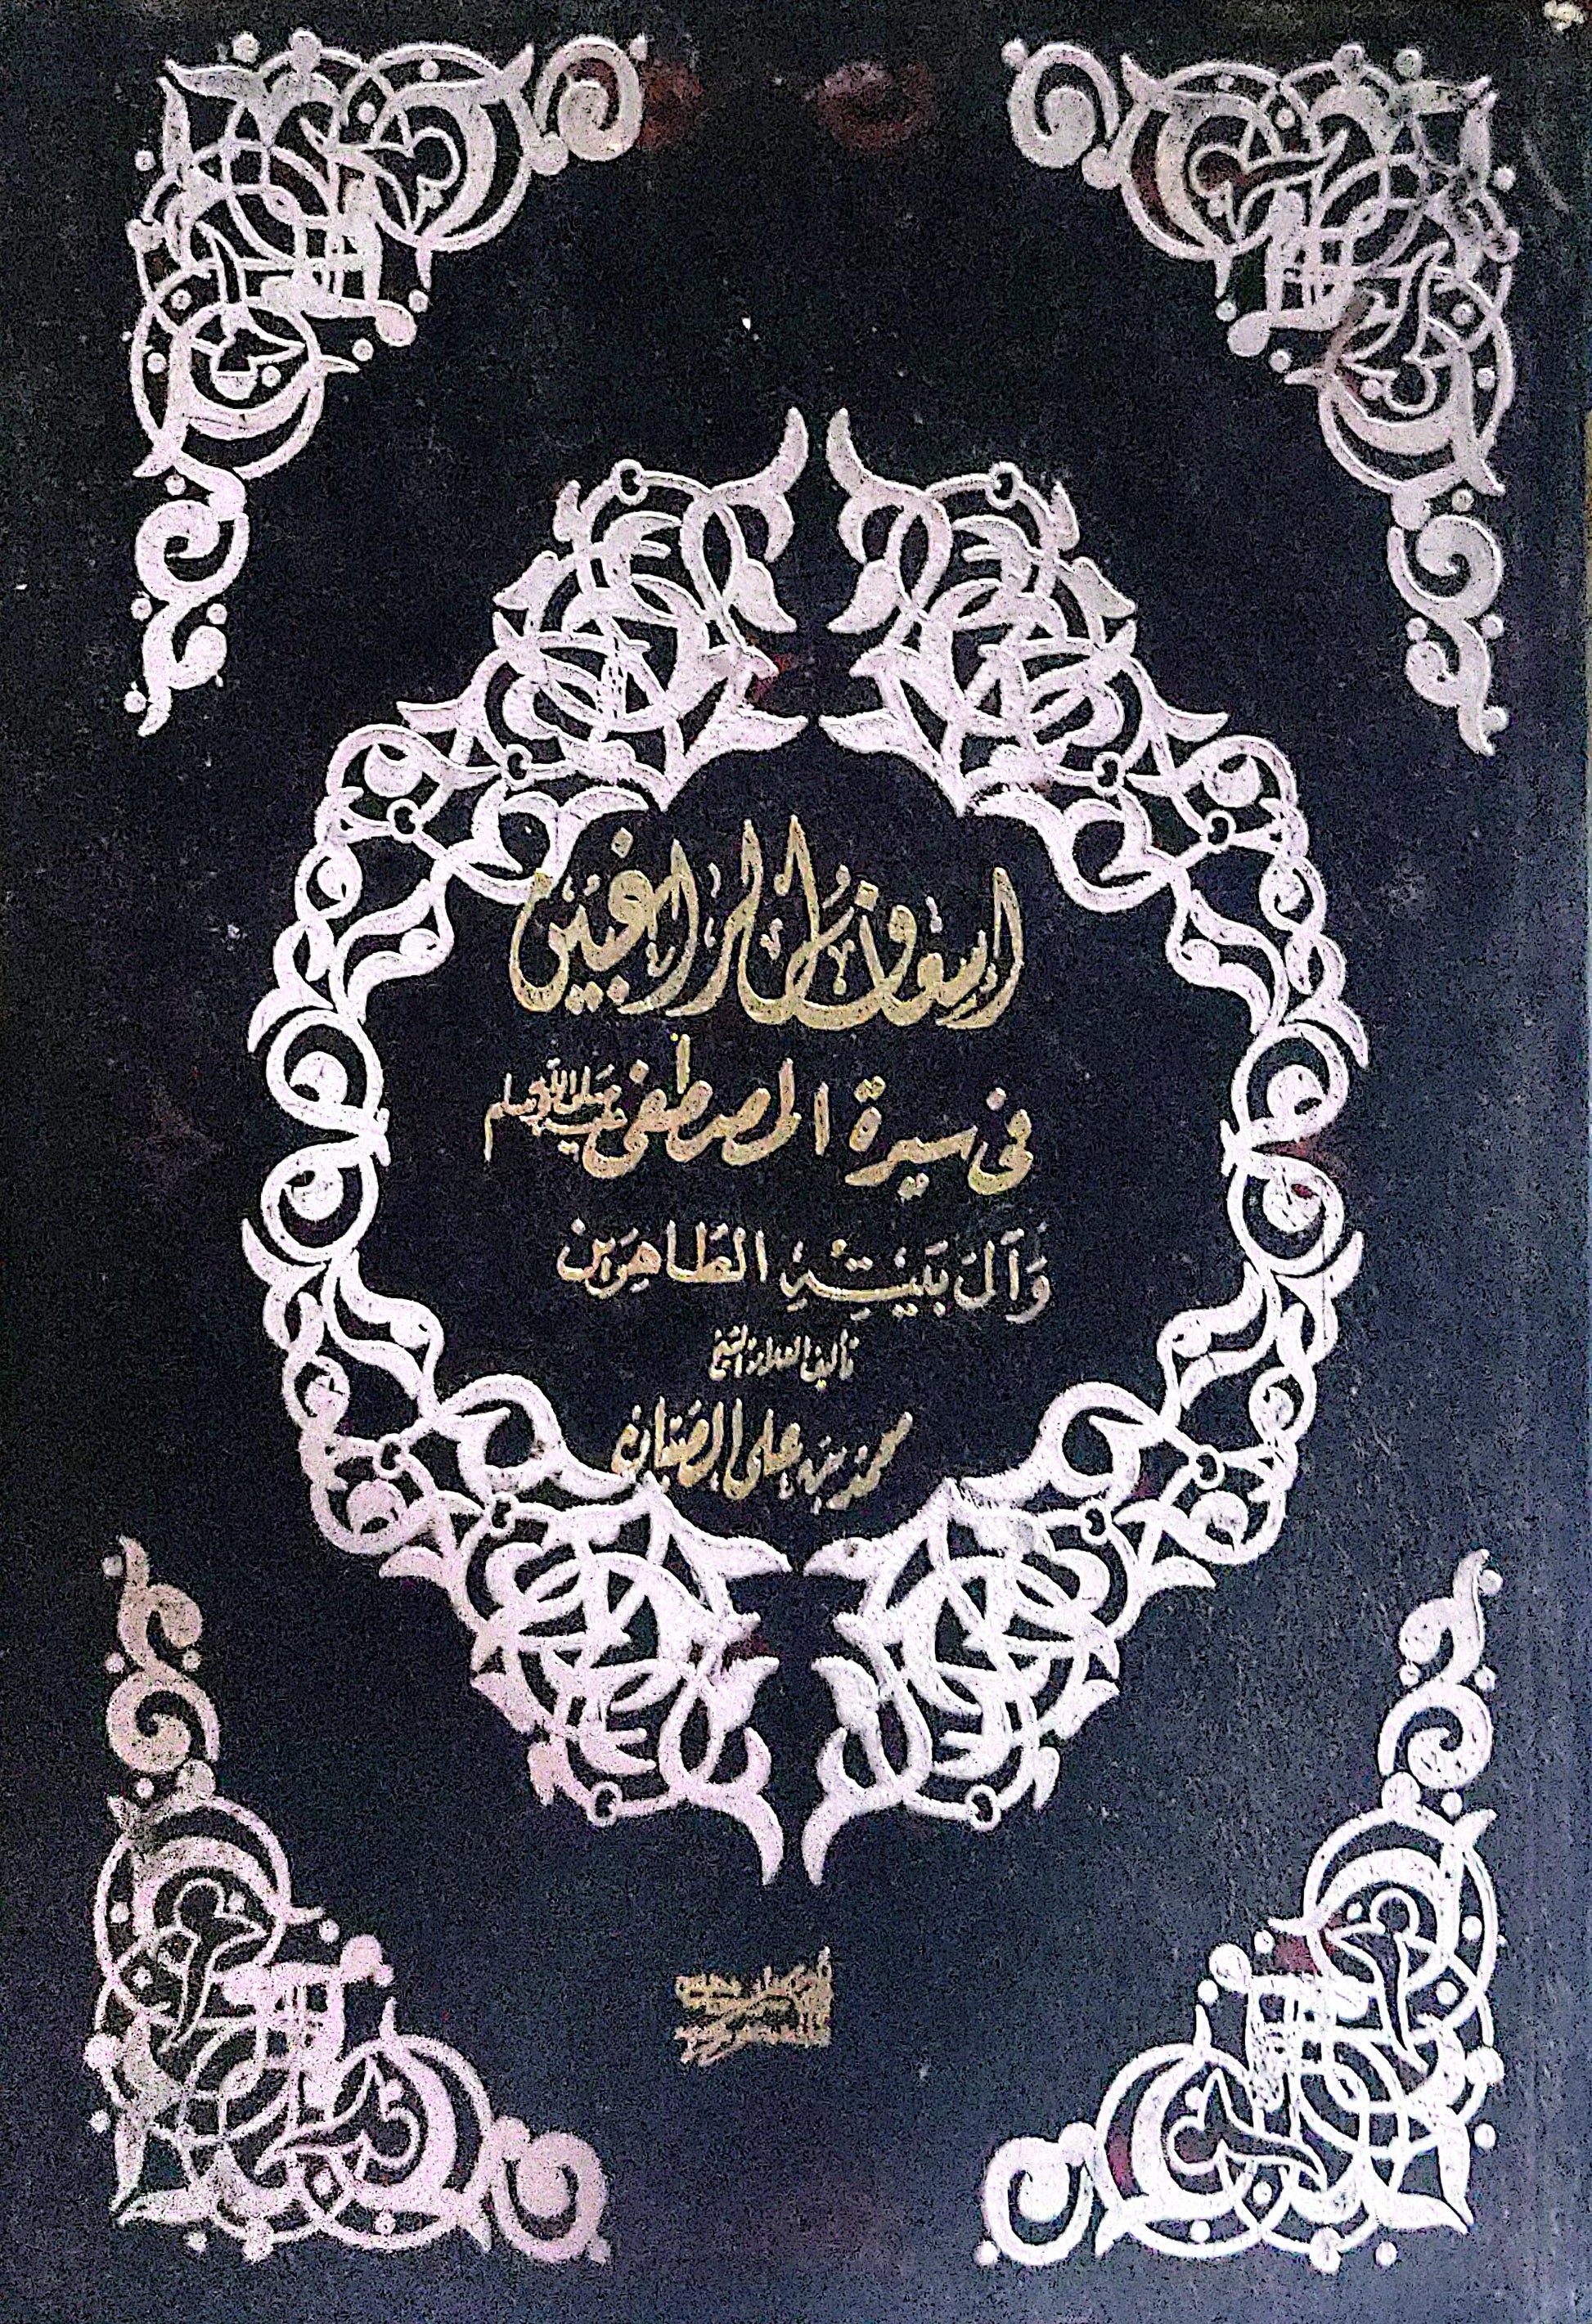 إسعاف الراغبين
في سيرة المصطفى صلى الله عليه وسلم
وَآلَ بَيْتِهِ الطَّاهِرِين
تأليف العلامة الشيخ
محمد بن علي الصبّان